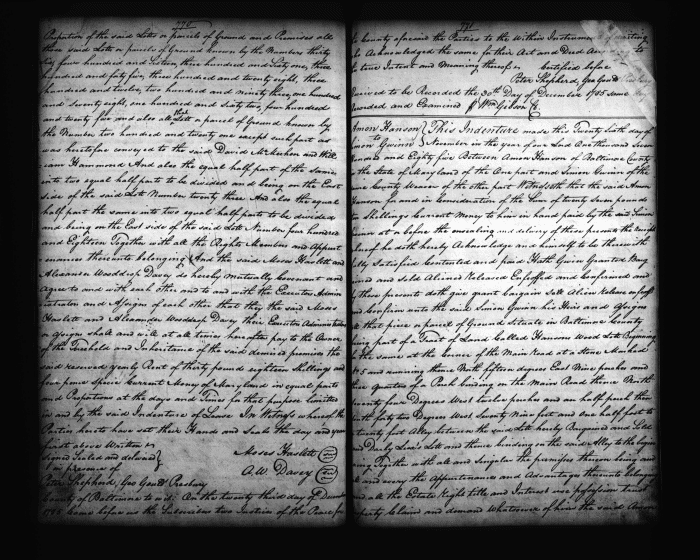 770
Proportion of the said Lots or parcels of Ground and Premises all
those said Lots or parcels of Ground known by the Numbers thirty
six four hundred and sixteen, three hundred and sixty one, three
hundred and forty five, three hundred and twenty eight, three
hundred and twelve, two hundred and ninety three, one hundred
and seventy eight, one hundred and sixty two, four hundred
and twenty five and also all that Lot or parcel of Ground known by
the Number two hundred and twenty one except such part as
was heretofore conveyed to the said David McMechen and Wil
liam Hammond And also the equal half part of the same
into two equal half parts to be divided and being on the East
side of the said Lot Number twenty three And also the equal
half part the same into two equal half parts to be divided
and being on the East side of the said Lot Number four hundred
and Eighteen Together with all the Rights Members and Appurt
enances thereunto belonging And the said Moses Haslett and
Alexander Woodrop Davey do hereby mutually Covenant and
agree to and with each other and to and with the Executors Admin
istrators and Assigns of each other that they the said Moses
Haslett and Alexander Woodrop Davey their Executors Administrators
or Assigns shall and will at all times hereafter pay to the Owner
of the Freehold and Inheritance of the said demised premises the
said reserved yearly Rent of thirty pounds eighteen Shillings and
five pence Specie Current Money of Maryland in equal parts
and Proportions at the days and Times for that purpose limited
in and by the said Indenture of Lease In Witness whereof the
Parties hereto have set their Hands and Seals the day and year
first above Written
Signed Sealed and delivered
in presence of
Moses Haslett
A. W. Davey
Peter Shepherd, Geo Goud Presbury
County of Baltimore to wit: On the twenty third day of December
1785 Came before us the Subscribers two Justices of the Peace for
771
County aforesaid the Parties to the Within Instrument of writing
Acknowledged the same for their Act and Deed
true Intent and Meaning thereof
Certified before
Peter Shepherd, Geo Goud
Received to be Recorded the 30th Day of December 1785 same
Recorded and Examined Wm Gibson
Amon Hanson
to
Gwinn
This Indenture made this Twenty Sixth day of
November in the year of our Lord One thousand Seven
Hundred and Eighty five Between Amon Hanson of Baltimore County
the State of Maryland of the One part and Simon Gwinn of the
County Weaver of the other part Witnesseth that the said Amon
Hanson for and in Consideration of the Sum of twenty Seven pounds
Shillings Current Money to him in hand paid by the said Simon
at or before the ensealing and delivery of these presents the receipt
whereof he doth hereby Acknowledge and himself to be therewith
fully Satisfied Contented and paid Hath Given Granted Barg
ained and sold Aliened Released Enfeoffed and Confirmed and
these presents doth give grant bargain Sell Alien Release enfeoff
and Confirm unto the said Simon Gwinn his Heirs and Assigns
all that piece or parcel of Ground Situate in Baltimore County
being part of a Tract of Land Called Hansons Wood Lot Beginning
the same at the Corner of the Main Road at a Stone Marked
and running thence North fifteen degrees East Nine perches and
three quarters of a Perch binding on the Main Road thence North
twenty four Degrees West twelve perches and an half perch then
South fifty two Degrees West Seventy Nine feet and One half foot to
twenty foot Alley between the said Lot hereby Bargained and Sold
and Darby Lux's Lot and thence binding on the said Alley to the begin
ning Together with all and Singular the premises thereon being and
and every the Appurtenance and Advantage thereunto belonging
and all the Estate Right title and Interest use possession trust
property Claim and demand Whatsoever of him the said Amon